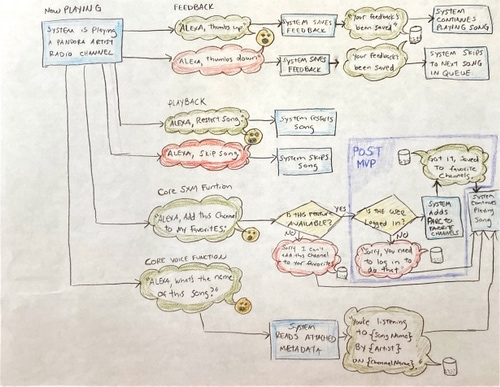 Now PLAYING
SYSTEM is Playing
A PANDORA ARTIST
RADIO CHANNEL.
FEEDBACK
ALEXA, Thumbs up
SYSTEM SAVES
FEEDBACK
Your feedback's
been saved.
SYSTEM
CONTINUES
PLAYING SONG
ALEXA, Thumbs down
SYSTEM SAVES
FEEDBACK
Your feedback's
been saved
SYSTEM SKIPS
TO NEXT SONG
IN QUEUE.
PLAYBACK
ALEXA, Restart Song
SYSTEM RESTARTS
Song
ALEXA, Skip Song
SYSTEM SKIPS
Song
Core SXM Funtion
"ALEXA, Add this Channel
to my Favorites."
IS this feature
AVAILABLE?
YES
NO
Sorry I can't
add this channel
to your favorites
POST
MVP
IS the USER
Logged in?
NO
Sorry, you need
to log in to
do that.
SYSTEM
ADDS
TO FAVORITE
CHANNELS
Got it, saved
to favorite
channels.
SYSTEM
Continues
Playing
Song
CORE VOICE FUNCTION
"ALEXA, what's the name
of this song?"
SYSTEM
READS ATTACHED
METADATA
You're listening
TO {Song Name}
BY {Artist}
ON {Channel Name}